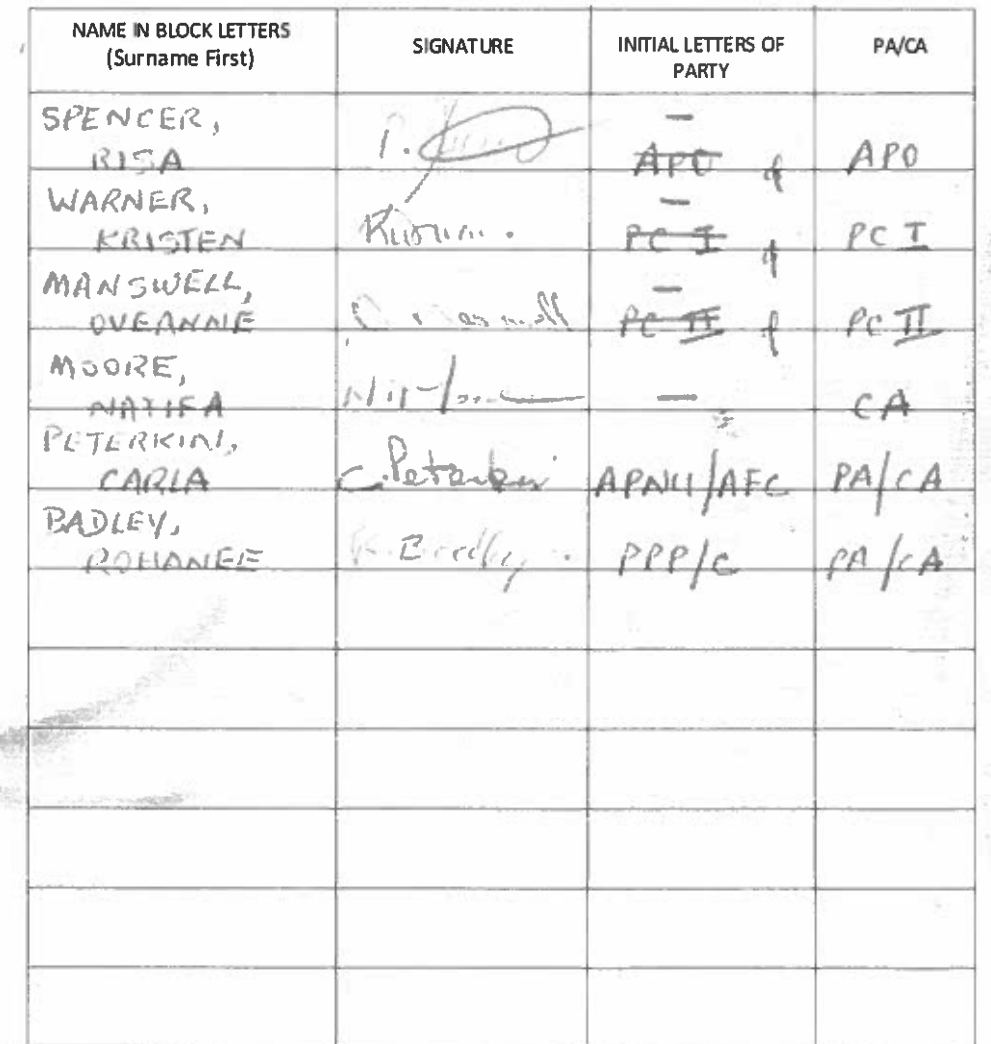 NAME IN BLOCK LETTERS SIGNATURE INITIAL LETTERS OF PA/CA
(Surname First) PARTY
SPENCER, —
RISA APO APO
WARNER, —
KRISTEN PC I PC I
MANSWELL, —
OVEANNIE PC II PC II
MOORE,
NATIFA — CA
PETERKIN,
CARLA C. Peterkin APNU/AFC PA/CA
BADLEY,
ROHANEE PPP/C PA/CA